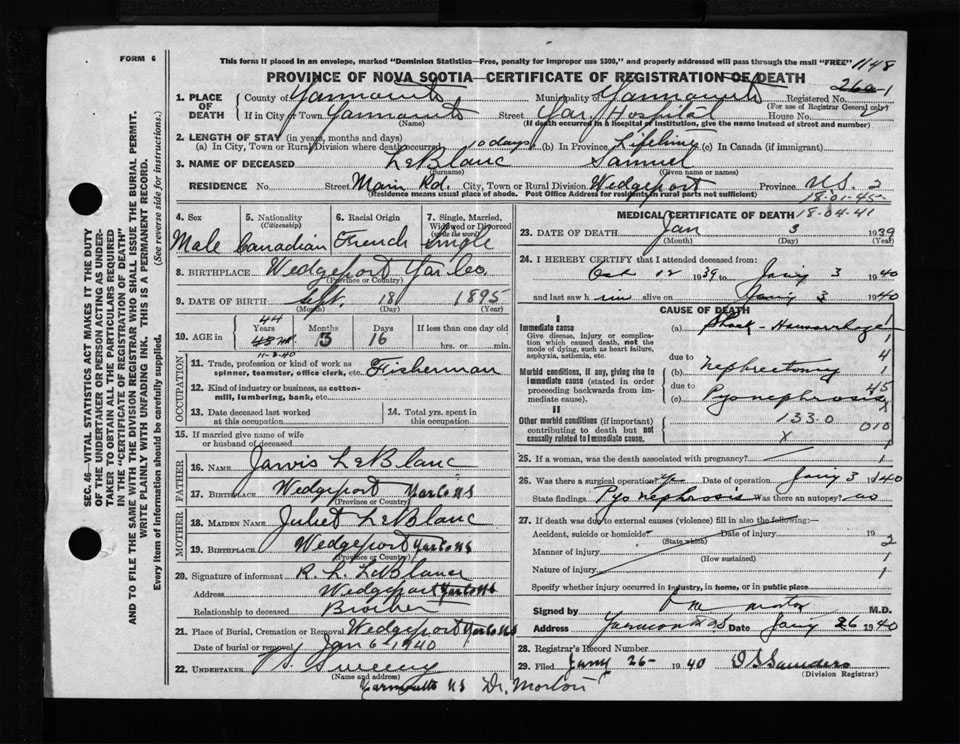 FORM 6
This form if placed in an envelope, marked "Dominion Statistics—Free, penalty for improper use $300," and properly addressed will pass through the mail "FREE"
1148
PROVINCE OF NOVA SCOTIA—CERTIFICATE OF REGISTRATION OF DEATH
1. PLACE OF DEATH
County of Yarmouth Municipality of Yarmouth Registered No.
(For use of Registrar General only)
If in City or Town Yarmouth Street Yar. Hospital House No.
(Name) (If death occurred in a hospital or institution, give the name instead of street and number)
2. LENGTH OF STAY (in years, months and days)
(a) In City, Town or Rural Division where death occurred 10 days (b) In Province Lifetime (c) In Canada (if immigrant)
3. NAME OF DECEASED LeBlanc Samuel
(Surname) (Given name or names)
RESIDENCE No. Street Main Rd. City, Town or Rural Division Wedgeport Province N.S. 2
(Residence means usual place of abode. Post Office Address for residents in rural parts not sufficient)
18-01-45-
18-04-41
SEC. 46—VITAL STATISTICS ACT MAKES IT THE DUTY
OF THE UNDERTAKER OR PERSON ACTING AS UNDER-
TAKER TO OBTAIN ALL THE PARTICULARS REQUIRED
IN THE "CERTIFICATE OF REGISTRATION OF DEATH"
AND TO FILE THE SAME WITH THE DIVISION REGISTRAR WHO SHALL ISSUE THE BURIAL PERMIT.
WRITE PLAINLY WITH UNFADING INK. THIS IS A PERMANENT RECORD.
Every item of information should be carefully supplied. (See reverse side for instructions.)
4. Sex
Male
5. Nationality
(Citizenship)
Canadian
6. Racial Origin
French
7. Single, Married,
Widowed or Divorced
(write the word)
Single
8. BIRTHPLACE Wedgeport Yar Co.
(Province or Country)
9. DATE OF BIRTH Sept. 18 1895
(Month) (Day) (Year)
10. AGE in
44
Years Months Days If less than one day old
3 16 hrs. or min.
11-3-40
OCCUPATION
11. Trade, profession or kind of work as
spinner, teamster, office clerk, etc. Fisherman
12. Kind of industry or business, as cotton-
mill, lumbering, bank, etc.
13. Date deceased last worked
at this occupation
14. Total yrs. spent in
this occupation
15. If married give name of wife
or husband of deceased
FATHER
16. Name Jarvis LeBlanc
17. Birthplace Wedgeport Yar Co NS
(Province or Country)
MOTHER
18. Maiden Name Juliet LeBlanc
19. Birthplace Wedgeport Yar Co NS
(Province or Country)
20. Signature of informant R. L. LeBlanc
Address Wedgeport Yar Co NS
Relationship to deceased Brother
21. Place of Burial, Cremation or Removal Wedgeport Yar Co NS
Date of burial or removal Jan 6 1940
22. UNDERTAKER Sweeny
Yarmouth NS Dr. Morton
MEDICAL CERTIFICATE OF DEATH
23. DATE OF DEATH Jan 3 1939
(Month) (Day) (Year)
24. I HEREBY CERTIFY that I attended deceased from:
Oct 12 1939 to Jany 3 1940
and last saw him alive on Jany 3 1940
CAUSE OF DEATH
I
Immediate cause
Give disease, injury or complica-
tion which caused death, not the
mode of dying, such as heart failure,
asphyxia, asthenia, etc.
(a) Shock - Hamorrhage
due to
Morbid conditions, if any, giving rise to
immediate cause (stated in order
proceeding backwards from im-
mediate cause).
(b) Nephrectomy
due to
(c) Pyonephrosis
II
Other morbid conditions (if important)
contributing to death but not
causally related to immediate cause.
133.0
x
1
4
1
45
x
010
1
25. If a woman, was the death associated with pregnancy?
26. Was there a surgical operation? Date of operation Jany 3 1940
State findings Pyonephrosis Was there an autopsy? no
27. If death was due to external causes (violence) fill in also the following:—
Accident, suicide or homicide Date of injury 19
(State which)
Manner of injury
(How sustained)
Nature of injury
2
1
1
Specify whether injury occurred in industry, in home, or in public place
Signed by Morton M.D.
Address Yarmouth NS Date Jany 26 1940
28. Registrar's Record Number
29. Filed Jany 26- 1940 Saunders
(Division Registrar)